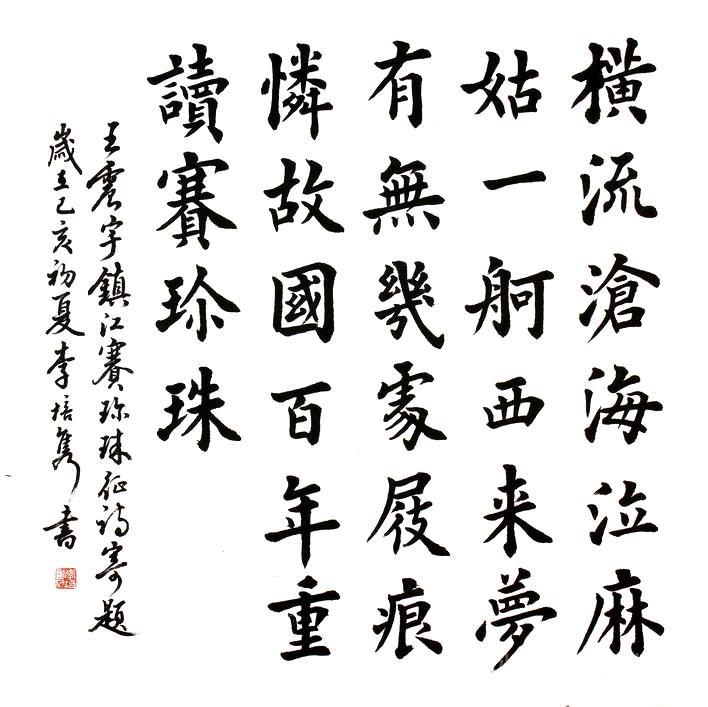 橫流滄海泣麻
姑一舸西来夢
有無幾處屐痕
憐故國百年重
讀賽珍珠
王震宇鎮江賽珍珠征詩寄題
歲在己亥初夏李培隽書